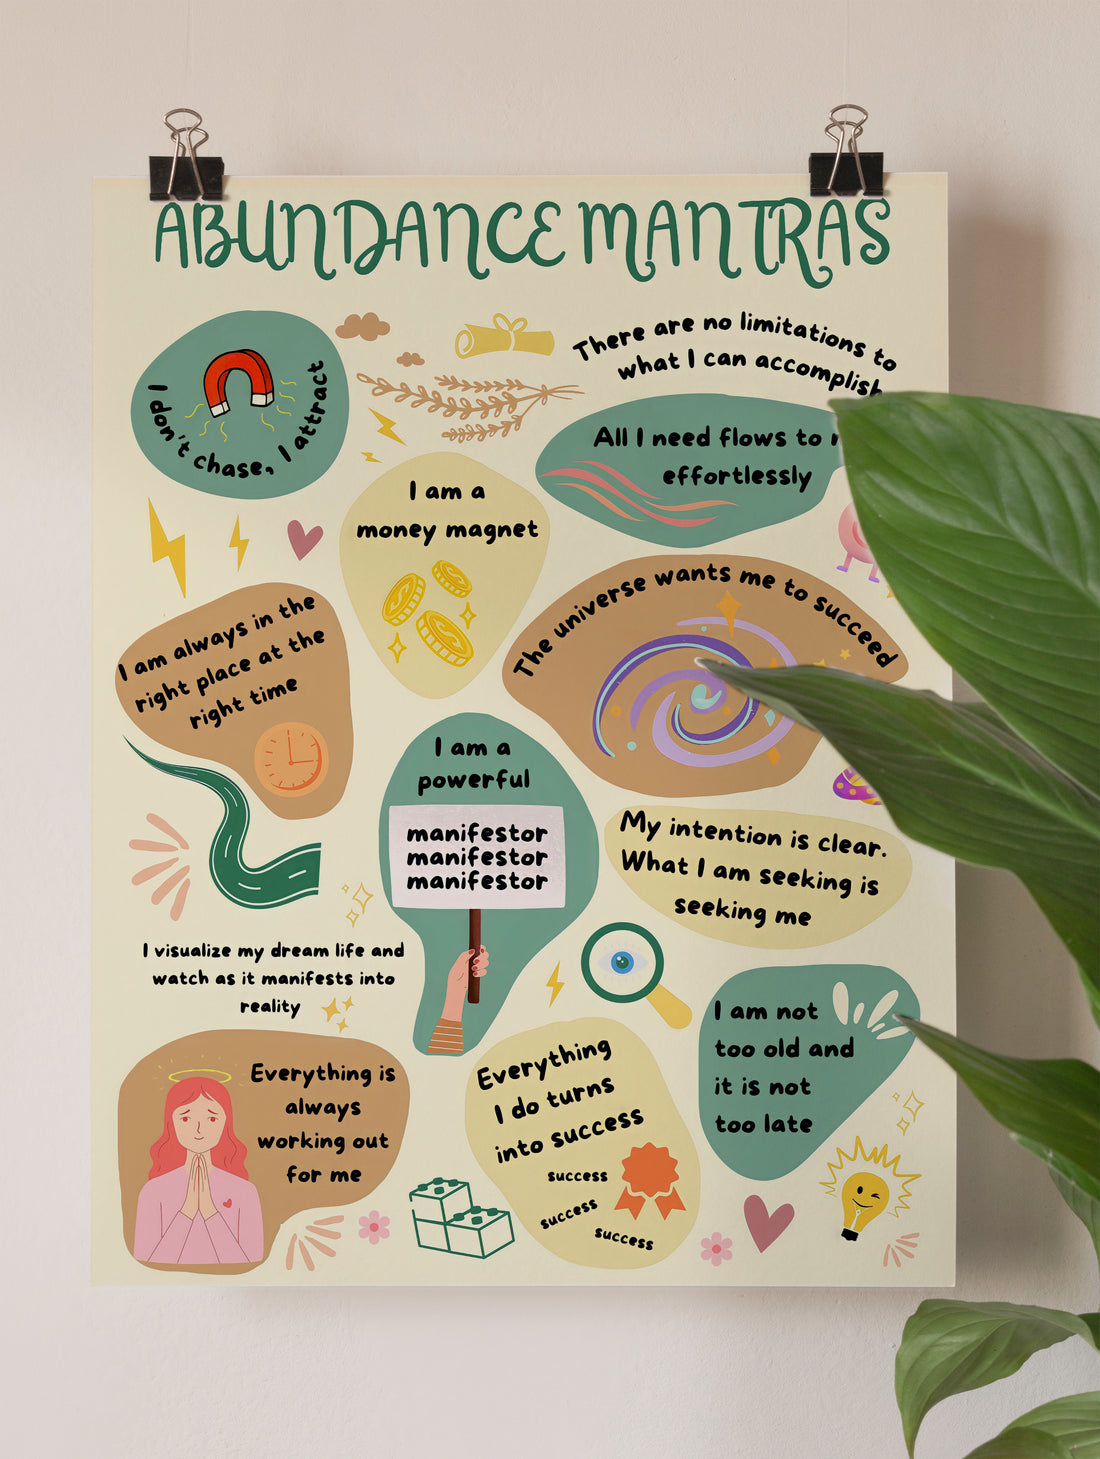 ABUNDANCE MANTRAS
I don't chase, I attract
There are no limitations to
what I can accomplish
All I need flows to
effortlessly
I am a
money magnet
The universe wants me to succeed
I am always in the
right place at the
right time
I am a
powerful
manifestor
manifestor
manifestor
My intention is clear.
What I am seeking is
seeking me
I visualize my dream life and
watch as it manifests into
reality
I am not
too old and
it is not
too late
Everything is
always
working out
for me
Everything
I do turns
into success
success
success
success